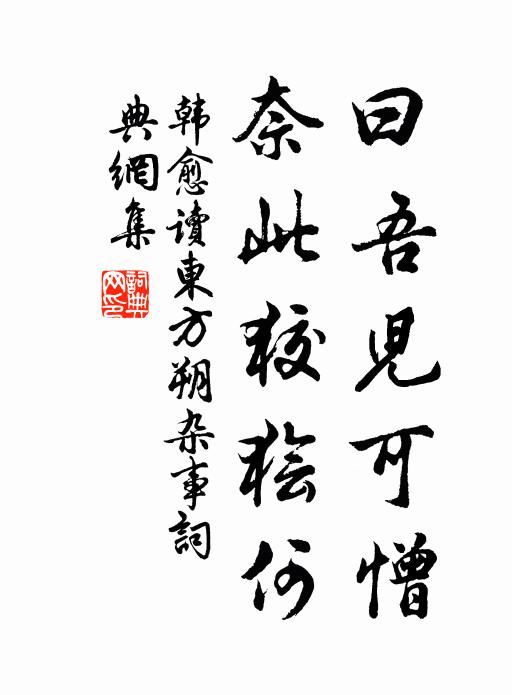 曰吾児可憎
奈此狡獪何
韩愈讀東方朔杂事詞
典網集
詞典网印